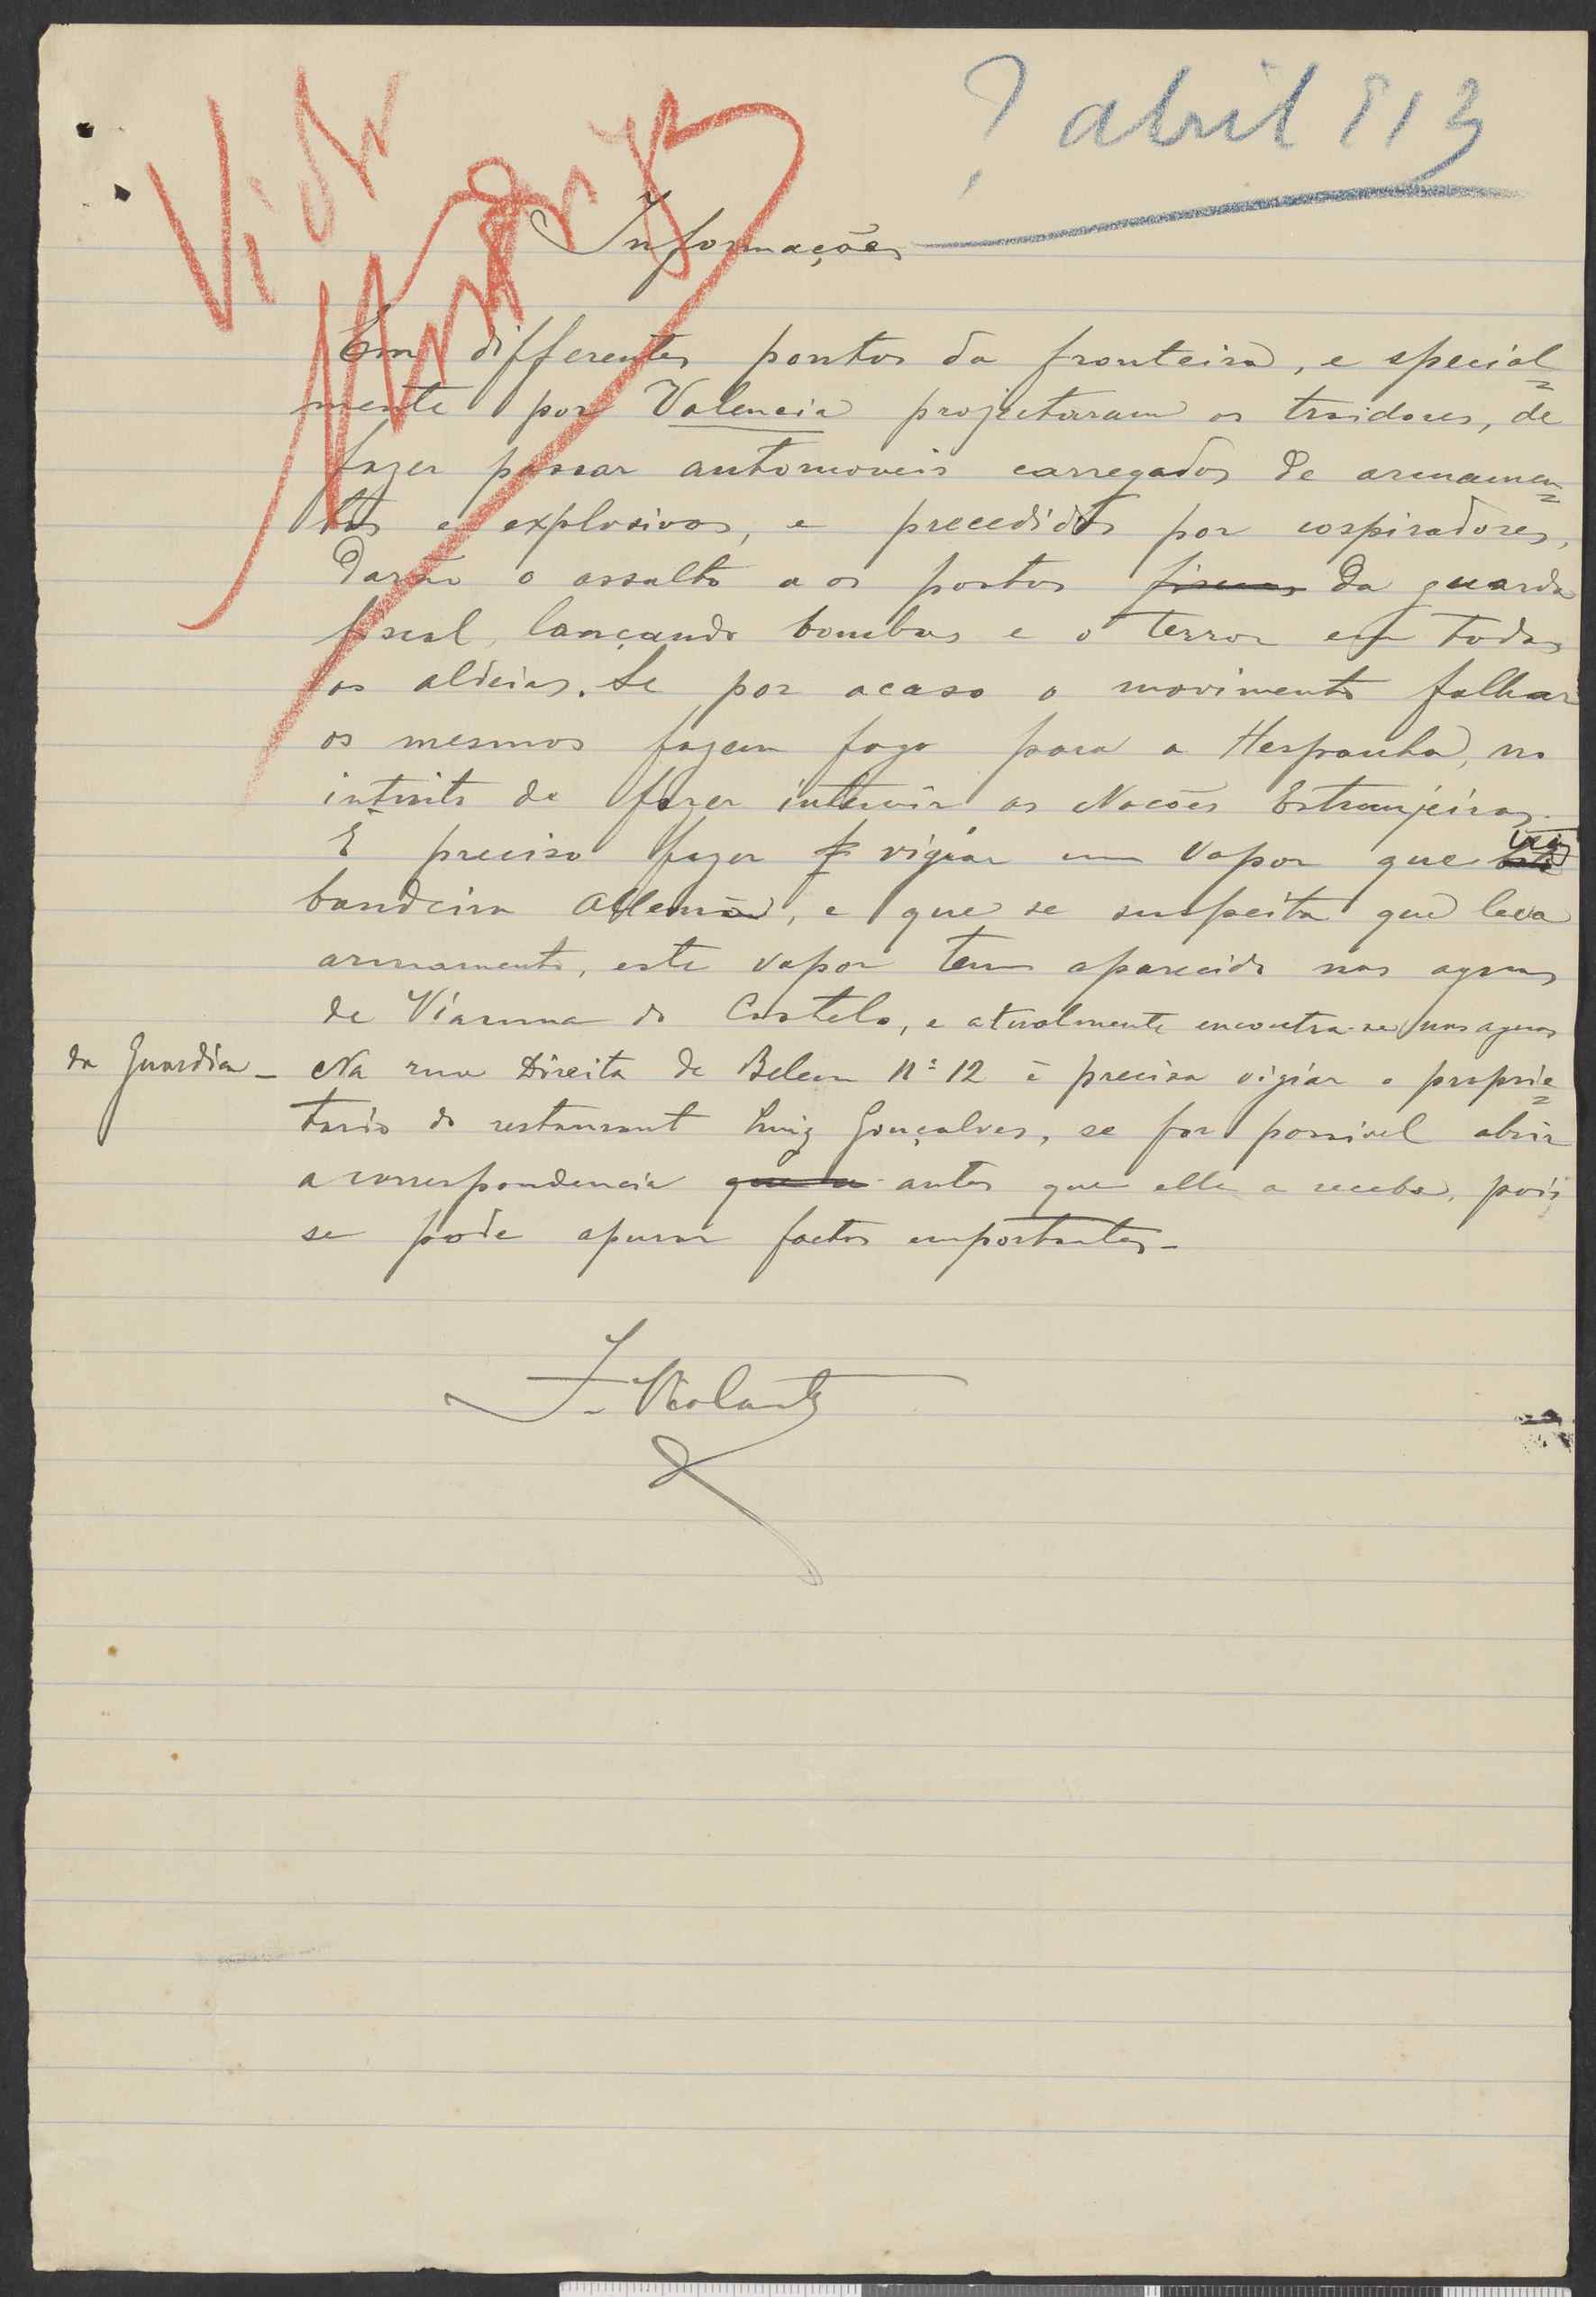 ? abril 913
Informações
Em differentes pontos da fronteira, e special=
mente por Valencia projetaram os traidores, de
fazer passar automoveis carregados de armamen=
tos e explosivos, e precedidos por cospiradores,
Darão o assalto a os postos fiscaes da guarda
fiscal, lançando bombas e o terror em todas
as aldeias. Se por acaso o movimento falhar
os mesmos fazem fogo para a Hespanha, no
intuito de fazer intervir as Nações Estranjeiras.
É preciso fazer vigiar um vapor que iça
bandeira Allemã, e que se suspeita que leva
armamento, este vapor tem aparecido nas aguas
de Vianna do Castelo, e atualmente encontra-se nas aguas
da Guardia - Na rua Direita de Belem nº 12 é preciso vigiar o proprie=
tario do restaurant Luiz Gonçalves, se for possivel abrir
a correspondencia que a antes que elle a receba, pois
se pode apurar factos emportantes -